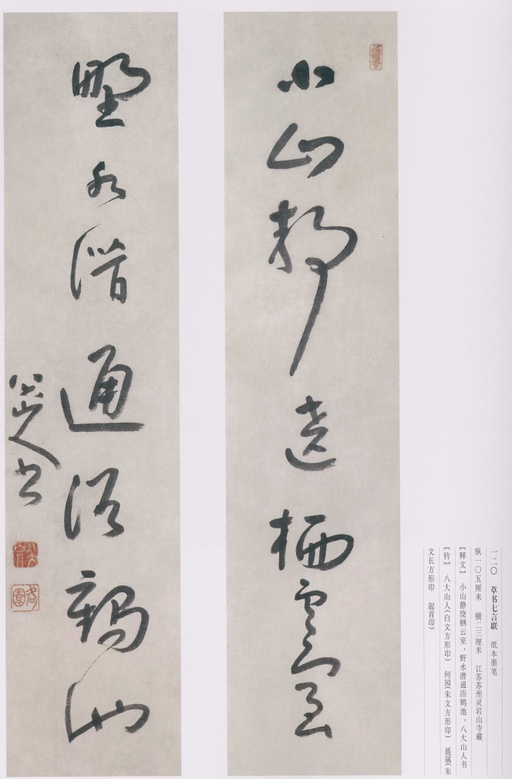 小山静绕栖云室
野水潜通浴鹤池
八大山人书
一二〇 草书七言联 纸本墨笔
纵一〇五厘米 横二三厘米 江苏苏州灵岩山寺藏
【释文】 小山静绕栖云室，野水潜通浴鹤池。八大山人书
【钤】 八大山人(白文方形印) 何园(朱文方形印) 遥属(朱
文长方形印 起首印)